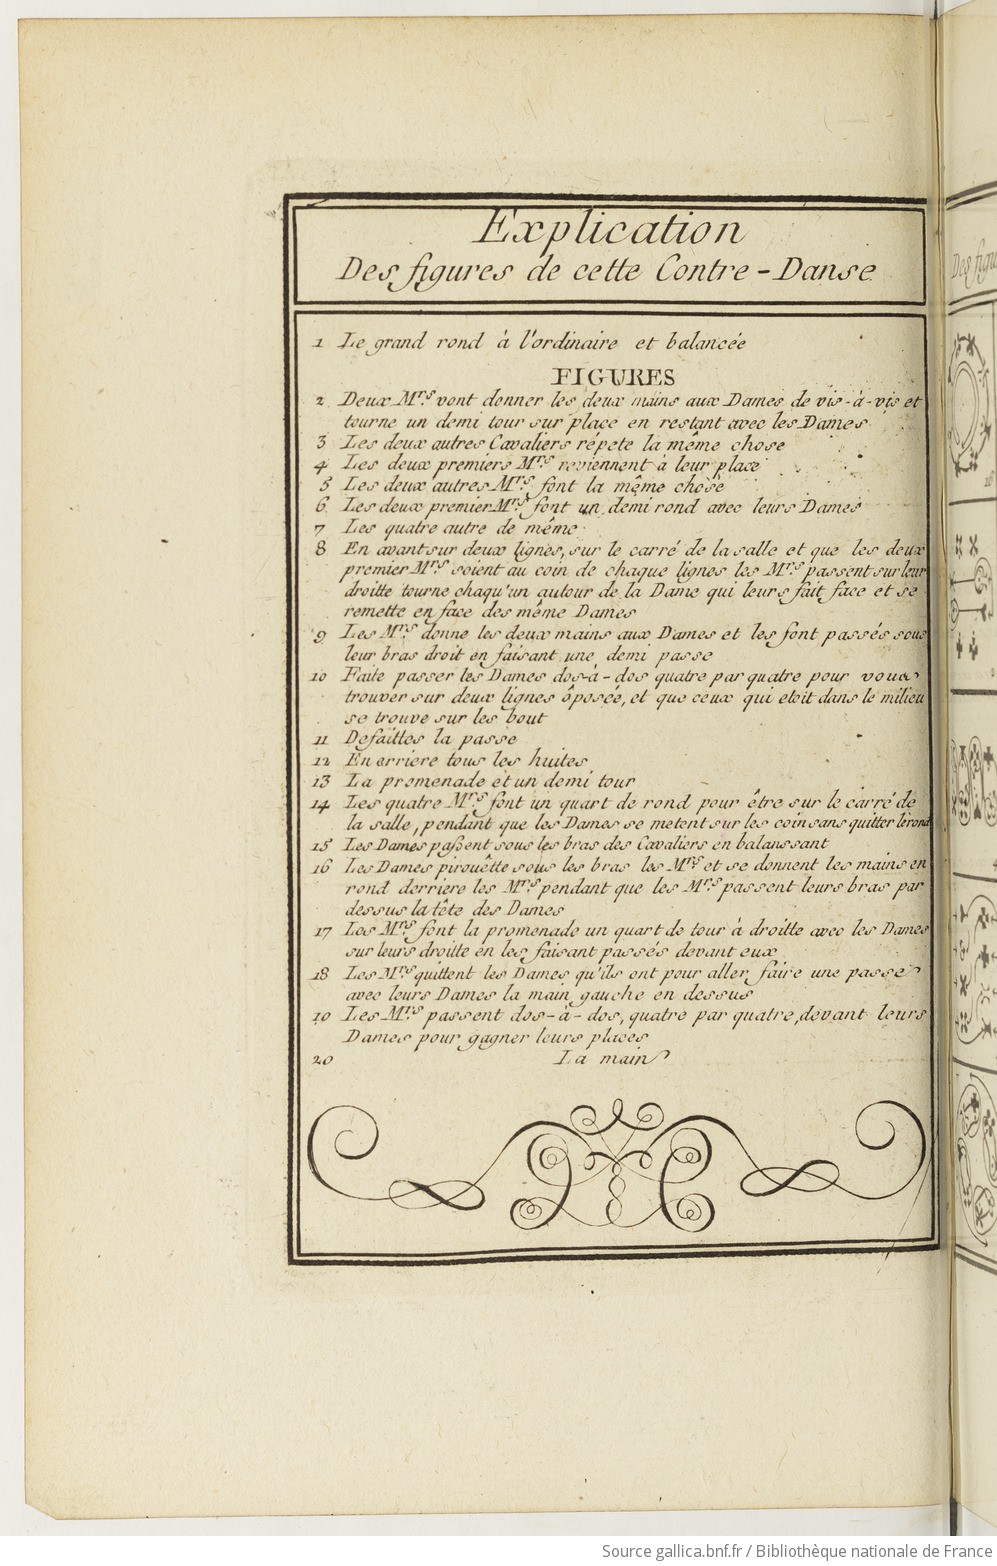 Explication
Des figures de cette Contre-Danse
1 Le grand rond à l'ordinaire et balancée
FIGURES
2 Deux Mrs. vont donner les deux mains aux Dames de vis-à-vis et
tourne un demi tour sur place en restant avec les Dames
3 Les deux autres Cavaliers répete la même chose
4 Les deux premiers Mrs. reviennent à leur place
5 Les deux autres Mrs. font la même chose
6 Les deux premier Mrs. font un demi rond avec leurs Dames
7 Les quatre autre de même
8 En avant sur deux lignes, sur le carré de la salle et que les deux
premier Mrs. soient au coin de chaque lignes les Mrs. passent sur leur
droitte tourne chaqu'un autour de la Dame qui leurs fait face et se
remette en face des même Dames
9 Les Mrs. donne les deux mains aux Dames et les font passés sous
leur bras droit en faisant une demi passe
10 Faite passer les Dames dos-à-dos quatre par quatre pour vous
trouver sur deux lignes ôposée, et que ceux qui etoit dans le milieu
se trouve sur les bout
11 Defaittes la passe
12 En arriere tous les huites
13 La promenade et un demi tour
14 Les quatre Mrs. font un quart de rond pour être sur le carré de
la salle, pendant que les Dames se metent sur les coin sans quitter le rond
15 Les Dames passent sous les bras des Cavaliers en balanssant
16 Les Dames pirouêtte sous les bras les Mrs. et se donnent les mains en
rond derriere les Mrs. pendant que les Mrs. passent leurs bras par
dessus la tête des Dames
17 Les Mrs. font la promenade un quart de tour à droitte avec les Dames
sur leurs droitte en les faisant passés devant eux
18 Les Mrs. quittent les Dames qu'ils ont pour aller faire une passe
avec leurs Dames la main gauche en dessus
19 Les Mrs. passent dos-à-dos, quatre par quatre, devant leurs
Dames pour gagner leurs places
20 La main
Des figu
Source gallica.bnf.fr / Bibliothèque nationale de France